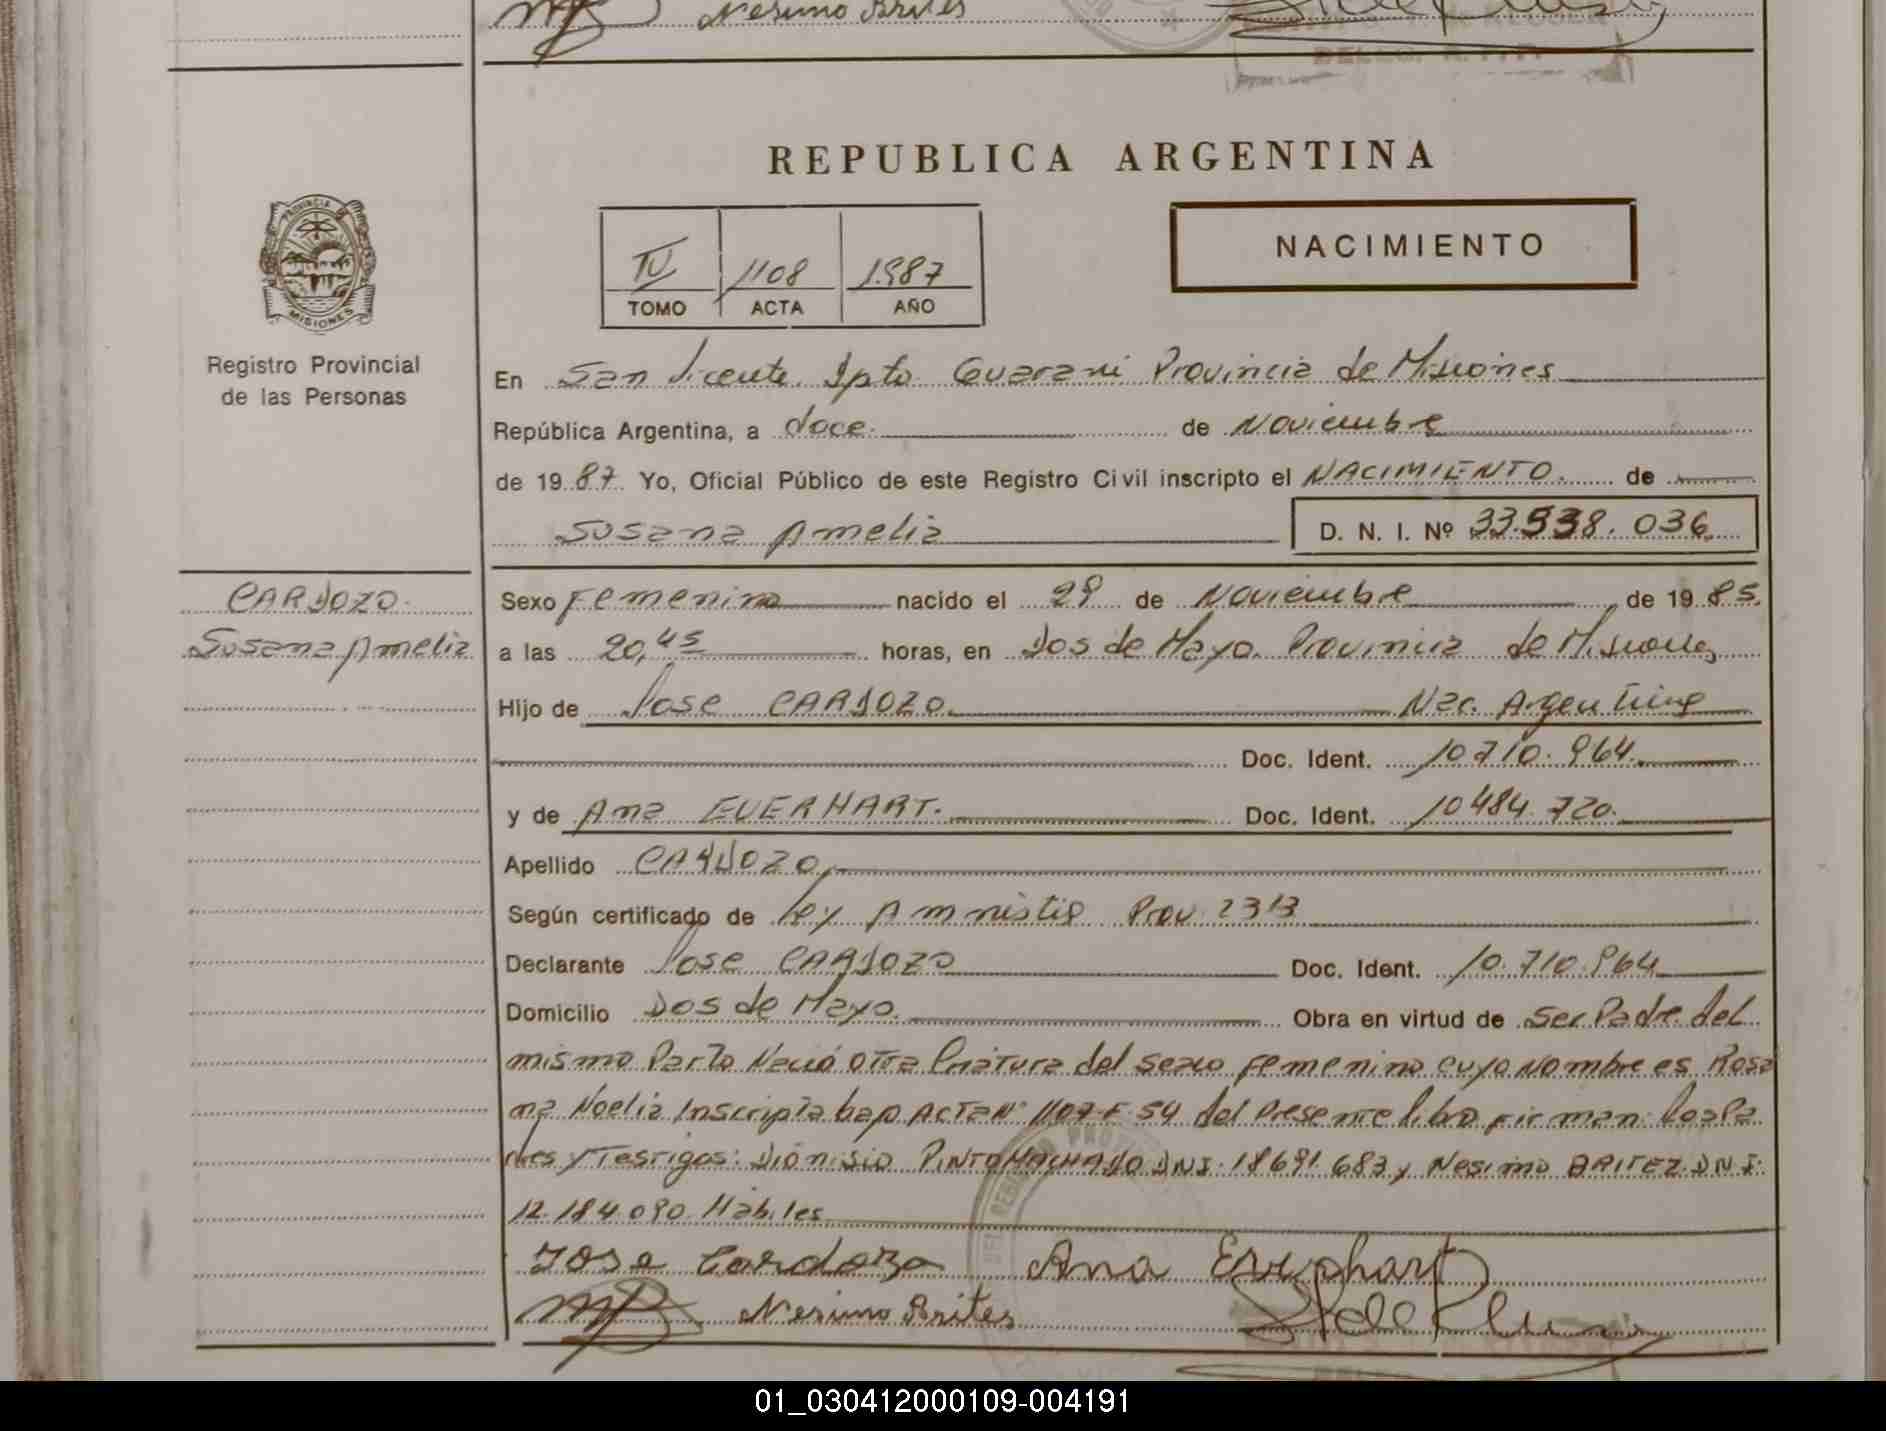 Nesimo Brites
REPUBLICA ARGENTINA
PROVINCIA
MISIONES
Registro Provincial
de las Personas
IV 1108 1.987
TOMO ACTA AÑO
NACIMIENTO
En San Vicente. Dpto Guarani Provincia de Misiones
República Argentina, a doce. de Noviembre
de 19 87. Yo, Oficial Público de este Registro Civil inscripto el NACIMIENTO. de
Susana Amelia D. N. I. Nº 33.538.036
CARDOZO.
Susana Amelia
Sexo Femenino nacido el 29 de Noviembre de 19 85.
a las 20,45 horas, en Dos de Mayo. Provincia de Misiones
Hijo de Jose CARDOZO. Nac. Argentina
Doc. Ident. 10.710.964.
y de Ana EVERHART. Doc. Ident. 10.484.720.
Apellido CARDOZO.
Según certificado de Ley Amnistia Prov. 2313
Declarante Jose CARDOZO Doc. Ident. 10.710.964
Domicilio Dos de Mayo. Obra en virtud de Ser Padre. del
mismo Parto Nació otra Criatura del sexo Femenino cuyo Nombre es Rosa
na Noelia Inscripta bajo ACTA Nº 1107-F-54 del Presente libro Firman: Los Pa
dres y Testigos: Dionisio PINTO MACHADO DNI: 18691683 y Nesimo BRITEZ DNI:
12.184.090. Hábiles
Jose Cardozo Ana Everhart
Nesimo Brites
01_030412000109-004191